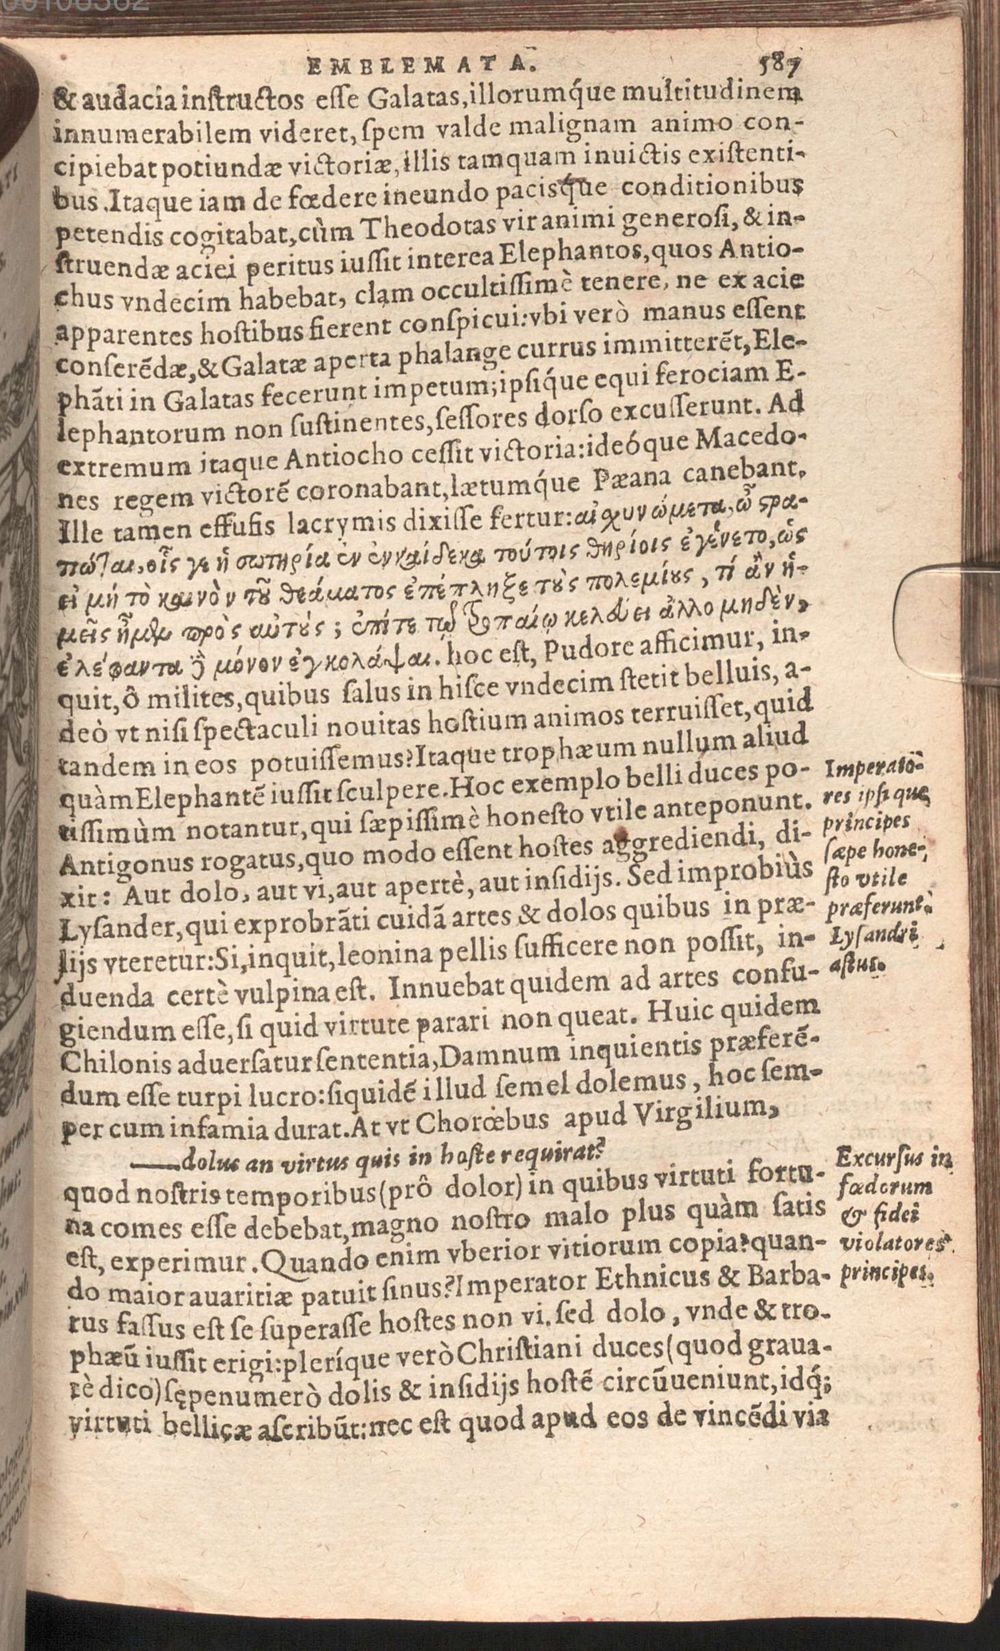 00108362
EMBLEMATA. 587
& audacia inſtructos eſſe Galatas, illorumq́ue multitudinem
innumerabilem videret, ſpem valde malignam animo con-
cipiebat potiundæ victoriæ, illis tamquam inuictis exiſtenti-
bus. Itaque iam de fœdere ineundo pacisq́ue conditionibus
petendis cogitabat, cùm Theodotas vir animi generoſi, & in-
ſtruendæ aciei peritus iuſſit interea Elephantos, quos Antio-
chus vndecim habebat, clam occultiſſimè tenere, ne ex acie
apparentes hoſtibus fierent conſpicui: vbi verò manus eſſent
conſerẽdæ, & Galatæ aperta phalange currus immitterẽt, Ele-
phãti in Galatas fecerunt impetum; ipſiq́ue equi ferociam E-
lephantorum non ſuſtinentes, ſeſſores dorſo excuſſerunt. Ad
extremum itaque Antiocho ceſſit victoria: ideóque Macedo-
nes regem victorẽ coronabant, lætumq́ue Pæana canebant.
Ille tamen effuſis lacrymis dixiſſe fertur: αἰσχυνώμετα, ὦ ςρα-
πῶται, οἷς γε ἡ σωτηρία ἐν ἑνκαίδεκα τούτοις θηρίοις ἐγένετο, ὧς
εἰ μὴ τὸ καινὸν τοῦ θεάματος ἐπέπληξε τοὺς πολεμίους, τί ἂν ἡ-
μεῖς ἦμεν πρὸς αὐτούς; ἐπί τε τῷ τροπαίῳ κελεύει ἄλλο μηδὲν,
ἐλέφαντα ἢ μόνον ἐγκολάψαι. hoc eſt, Pudore afficimur, in-
quit, ô milites, quibus ſalus in hiſce vndecim ſtetit belluis, a-
deò vt niſi ſpectaculi nouitas hoſtium animos terruiſſet, quid
tandem in eos potuiſſemus? Itaque trophæum nullum aliud
quàm Elephantẽ iuſſit ſculpere. Hoc exemplo belli duces po-
tiſſimùm notantur, qui ſæpiſſimè honeſto vtile anteponunt.
Antigonus rogatus, quo modo eſſent hoſtes aggrediendi, di-
xit: Aut dolo, aut vi, aut apertè, aut inſidijs. Sed improbiùs
Lyſander, qui exprobrãti cuidã artes & dolos quibus in præ-
lijs vteretur: Si, inquit, leonina pellis ſufficere non poſſit, in-
duenda certè vulpina eſt. Innuebat quidem ad artes confu-
giendum eſſe, ſi quid virtute parari non queat. Huic quidem
Chilonis aduerſatur ſententia, Damnum inquientis præferẽ-
dum eſſe turpi lucro: ſiquidẽ illud ſemel dolemus, hoc ſem-
per cum infamia durat. At vt Chorœbus apud Virgilium,
——dolus an virtus quis in hoſte requirat?
quod noſtris temporibus (prô dolor) in quibus virtuti fortu-
na comes eſſe debebat, magno noſtro malo plus quàm ſatis
eſt, experimur. Quando enim vberior vitiorum copia? quan-
do maior auaritiæ patuit ſinus? Imperator Ethnicus & Barba-
rus faſſus eſt ſe ſuperaſſe hoſtes non vi, ſed dolo, vnde & tro-
phæũ iuſſit erigi: pleríque verò Chriſtiani duces (quod graua-
tè dico) ſępenumerò dolis & inſidijs hoſtẽ circũueniunt, idq́;
virtuti bellicæ aſcribũt: nec eſt quod apud eos de vincẽdi via
Imperato-
res ipſi que
principes
ſæpe hone-
ſto vtile
præferunt.
Lyſandri
aſtus.
Excurſus in
fœderum
& fidei
violatores
principes.